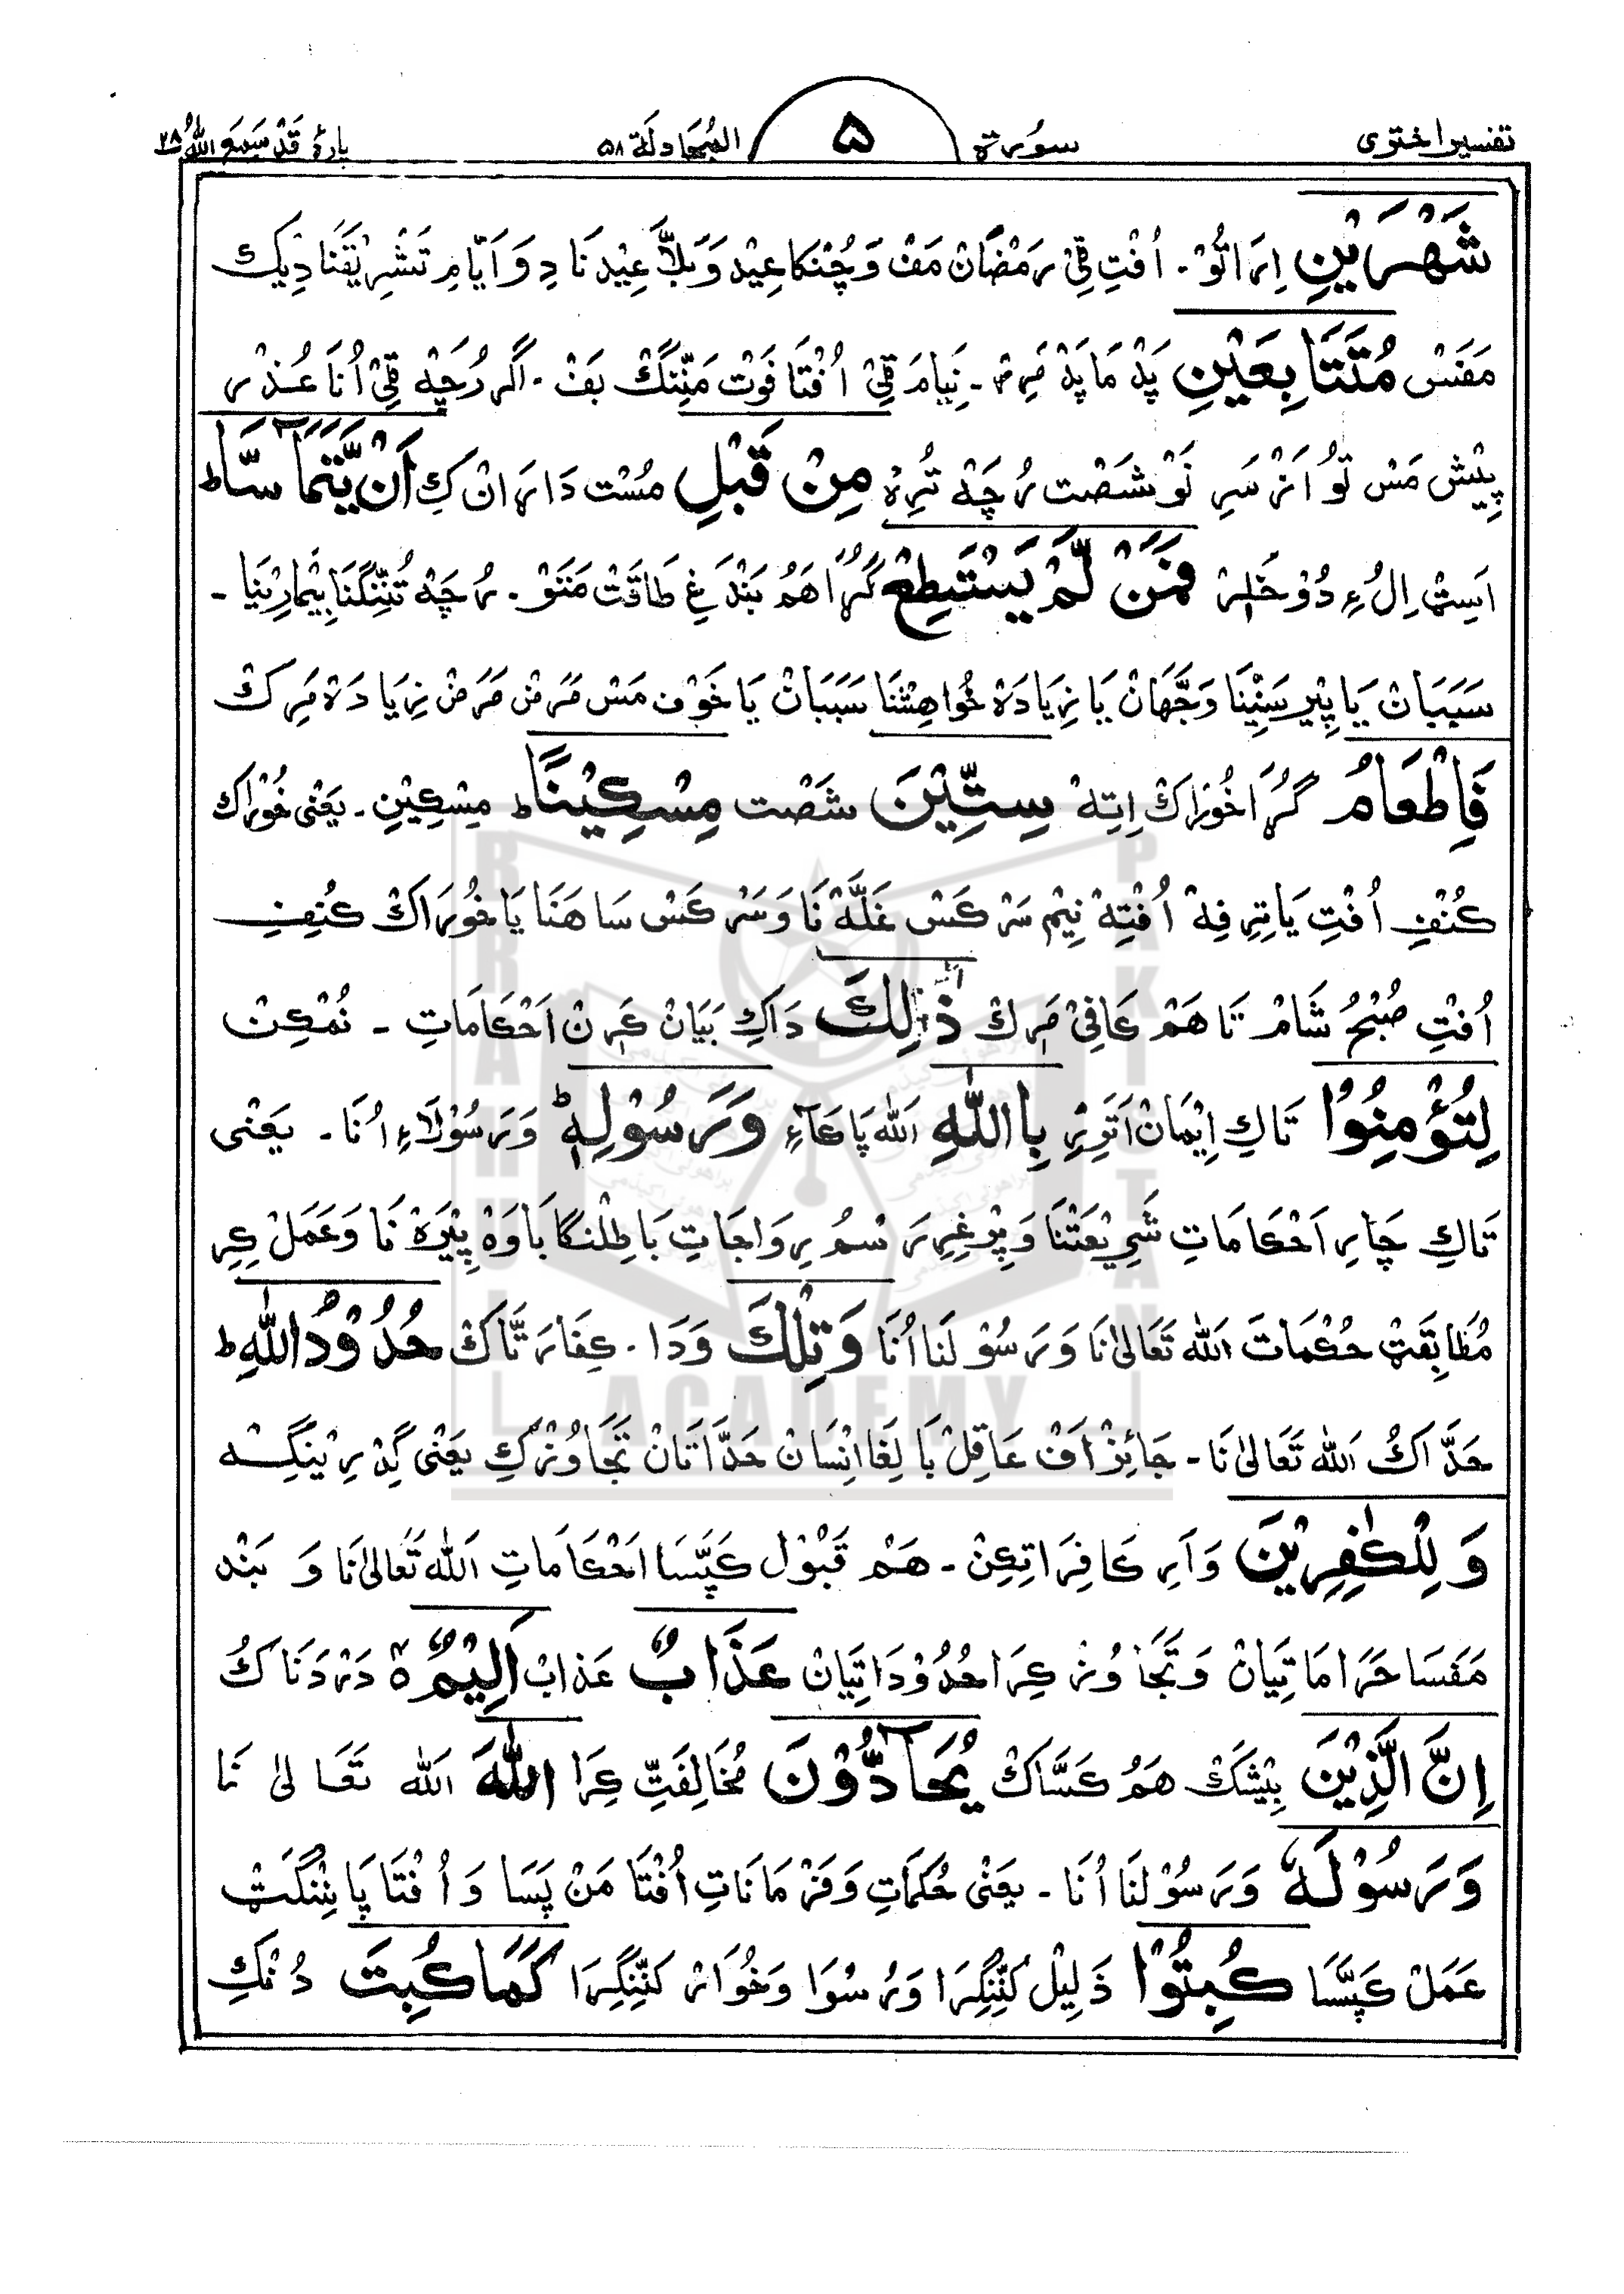 تفسیر اختری سورة ۵ المجادلة ۵۸ پارہ قَدْ سَمِعَ اللّٰهُ ۲۸
شَهْرَیْنِ اِرَا تُوْ۔ اُفْتِ قِیْ رَمْضَانْ مَفْ وَ چُنْکَا عِیْد وَ بَلَّا عِیْد نَا دِ وَ اَیَّامِ تَشْرِیْقَنَا دِیْک
مَفَسْ مُتَتَابِعَیْنِ پَدْ مَا پَدْ مَرِرْ۔ نِیَامَ قِیْ اُفْتَا فَوْت مَنِّنْگْ بَفْ۔ اَگَر رُچَہْ قِیْ اُنَا عُذْر
پِیْش مَسْ تَوْ اَزْ سَرِ نَوْ شَصْت رُچَہْ تُرِہْ مِنْ قَبْلِ مُسْت دَارَانْ کِ اَنْ یَّتَمَآسَّا ط
اَسِٹْ اِلُ ءِ دُوْ خَلِرْ فَمَنْ لَّمْ یَسْتَطِعْ گُڑَا هَمُ بَنْدَغِ طَاقَتْ مَتَوْ۔ رُچَہْ تُنِّنْگَنَا بِیْمَارِیْنَا۔
سَبَبَانْ یَا پِیْرِ سَنِیْنَا وَجَّهَانْ یَا زِیَادَہْ خُواهِشْنَا سَبَبَانْ یَا خَوْف مَسْ مَرَضْ مَرَضْ زِیَادَہْ مَرِکْ
فَاِطْعَامُ گُڑَا خُوْرَاکْ اِتِہْ سِتِّیْنَ شَصْت مِسْکِیْنًا ط مِسْکِیْنِ۔ یَعْنٰی خُوْرَاک
کُنْفِ اُفْتِ یَا تِرِفِہْ اُفْتِہْ نِیْم سَرْ کَسْ غَلَّہْ نَا وَ سَرْ کَسْ سَا هَنَا یَا خُوْرَاکْ کُنِفِ
اُفْتِ صُبْحُ شَامْ تَا هَمْ کَافِیْ مَرِکْ ذٰلِكَ دَاکِ بَیَانْ کَرِنْ اَحْکَامَاتِ ۔ نُمْکِنْ
لِتُؤْمِنُوْا تَاکِ اِیْمَانْ اَتَرِرْ بِاللّٰهِ اَللّٰه پَاکَاءِ وَرَسُوْلِهٖ ط وَ رَسُوْلَاءِ اُنَا۔ یَعْنٰی
تَاکِ چَارِ اَحْکَامَاتِ شَرِیْعَتْنَا وَ پِرْغِرِ رَسْمُ رِوَاجَاتِ بَاطِلْنَگَا بَاوَہْ پِیْرَہْ نَا وَ عَمَلْ کِرِ
مُطَابِقَتْ حُکْمَاتَ اَللّٰه تَعَالٰی نَا وَ رَسُوْلَنَا اُنَا وَتِلْكَ وَ دَا۔ کِفَارَتَّاکْ حُدُوْدُ اللّٰهِ ط
حَدَّاكُ اَللّٰه تَعَالٰی نَا۔ جَائِزْ اَفْ عَاقِلْ بَالِغَا اِنْسَانْ حَدَّاتَانْ تَجَاوُزْ کِ یَعْنٰی گِدْرِیْنِگِہ
وَ لِلْکٰفِرِیْنَ وَ اَرِ کَافِرَاتِکِنْ۔ هَمْ قَبُوْل کَپَّسَا اَحْکَامَاتِ اَللّٰه تَعَالٰی نَا وَ بَنْد
مَفَسَا حَرَامَاتِیَانْ وَ تَجَاوُزْ کِرَا حُدُوْدَاتِیَانْ عَذَابٌ عَذَابْ اَلِیْمٌ ۝ دَرْدَنَاکُ
اِنَّ الَّذِیْنَ بِیْشَكْ هَمُ کَسَّاكْ یُحَآدُّوْنَ مُخَالِفَتِّ کِرَا اللّٰهَ اَللّٰه تَعَالٰی نَا
وَ رَسُوْلَهٗ وَ رَسُوْلنَا اُنَا۔ یَعْنٰی حُکمَاتِ وَ فَرْمَانَاتِ اُفْتَا مَنْ پَسَا وَ اُفْتَا پَا نِنْگَتْ
عَمَلْ کَپَّسَا كُبِتُوْا ذَلِیْل کَنِّنْگِرَا وَ رُسْوَا وَ خُوَارْ کَنِّنْگِرَا كَمَا كُبِتَ دُنْکِ
BRAHUI ACADEMY PAKISTAN